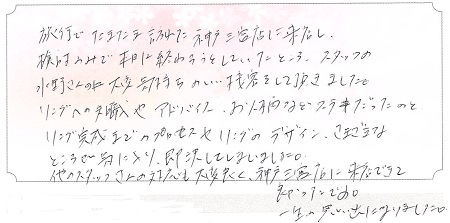 旅行でたまたま訪れた神戸三宮店に来店し、
検討のみで本日は終わろうとしていたところ、スタッフの
水野さんに大変気持ちのいい接客をして頂きました。
リングへの知識やアドバイス、お人柄などステキだったのと
リング完成までのプロセスやリングのデザイン、さまざまな
ところが気に入り、即決してしまいました。
他のスタッフさんの対応も大変良く、神戸三宮店に来店できて
良かったです。
一生の思い出になりました。